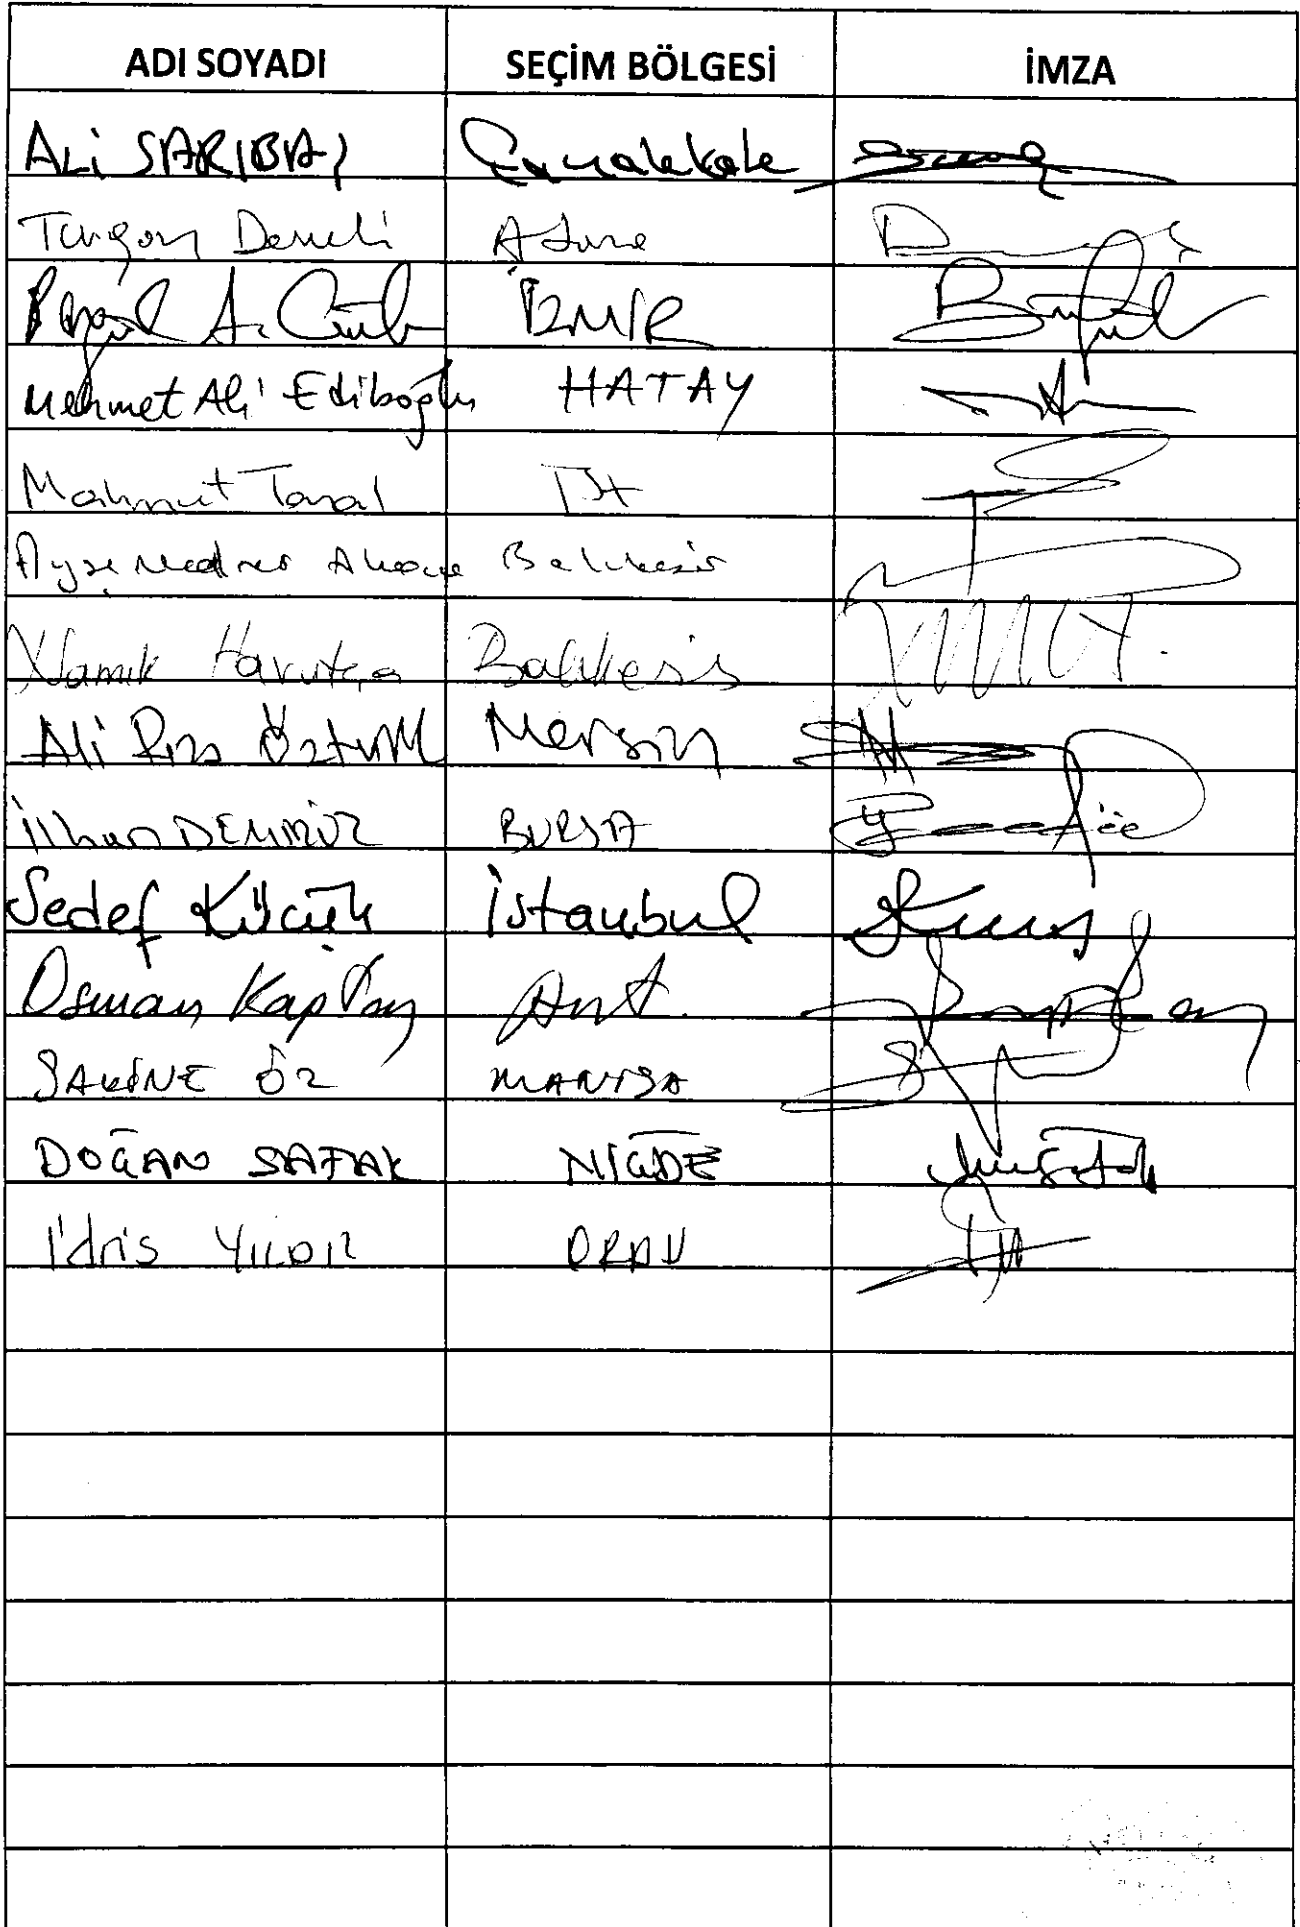 ADI SOYADI SEÇİM BÖLGESİ İMZA
ALİ SARIBAŞ Çanakkale
Turgay Develi Adana
İZMİR
Mehmet Ali Ediboğlu HATAY
Mahmut Tanal İst
Ayşe Nedret Akova Balıkesir
Namık Havutça Balıkesir
Ali Rıza Öztürk Mersin
İlhan DEMİRÖZ BURSA
Sedef Küçük İstanbul
Osman Kaptan Ant.
SAKİNE ÖZ MANİSA
DOĞAN ŞAFAK NİĞDE
İdris YILDIZ ORDU